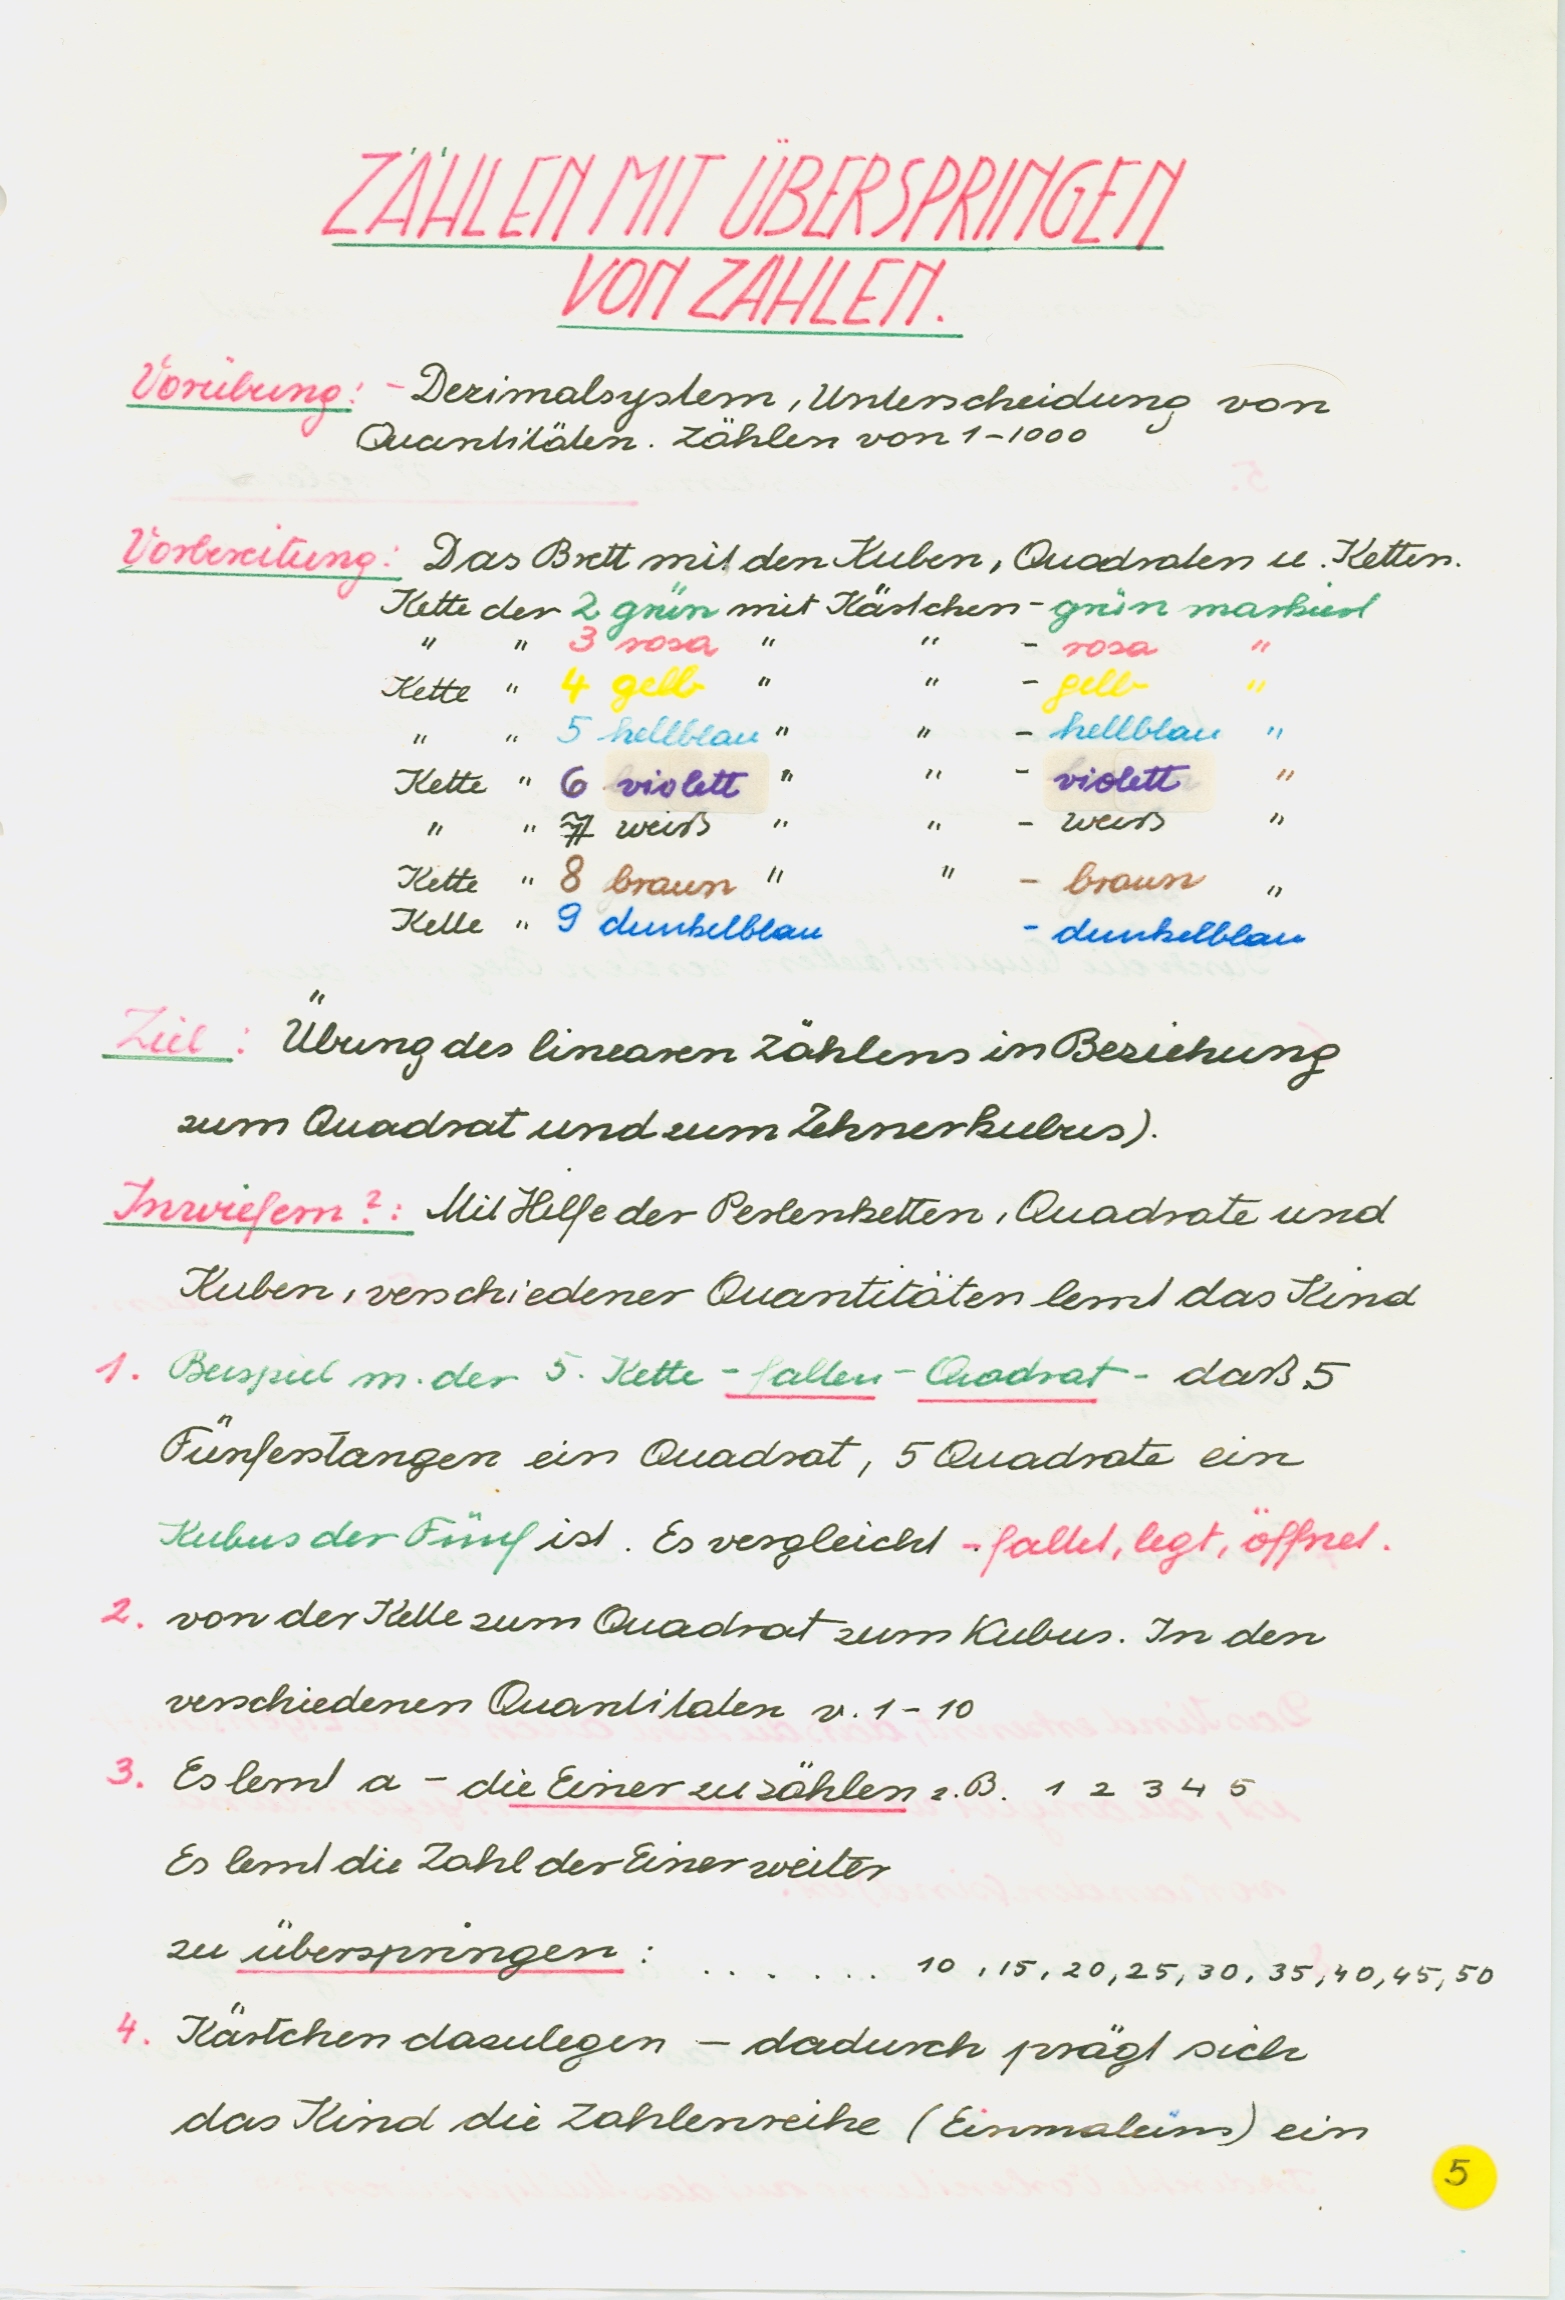 ZÄHLEN MIT ÜBERSPRINGEN
VON ZAHLEN.
Vorübung: - Dezimalsystem, Unterscheidung von
Quantitäten. Zählen von 1-1000
Vorbereitung: Das Brett mit den Kuben, Quadraten u. Ketten.
Kette der 2 grün mit Kästchen - grün markiert
" " 3 rosa " " - rosa "
Kette " 4 gelb " " - gelb "
" " 5 hellblau " " - hellblau "
Kette " 6 violett " " - violett "
" " 7 weiß " " - weiß "
Kette " 8 braun " " - braun "
Kette " 9 dunkelblau - dunkelblau
Ziel: Übung des linearen Zählens in Beziehung
zum Quadrat und zum Zehnerkubus).
Inwiefern?: Mit Hilfe der Perlenketten, Quadrate und
Kuben, verschiedener Quantitäten lernt das Kind
1. Beispiel m. der 5. Kette - falten - Quadrat - daß 5
Fünferstangen ein Quadrat, 5 Quadrate ein
Kubus der Fünf ist. Es vergleicht - faltet, legt, öffnet.
2. von der Kette zum Quadrat zum Kubus. In den
verschiedenen Quantitaten v. 1-10
3. Es lernt a - die Einer zu zählen z.B. 1 2 3 4 5
Es lernt die Zahl der Einer weiter
zu überspringen: . . . . . . 10, 15, 20, 25, 30, 35, 40, 45, 50
4. Kästchen dazulegen - dadurch prägt sich
das Kind die Zahlenreihe (Einmaleins) ein
5